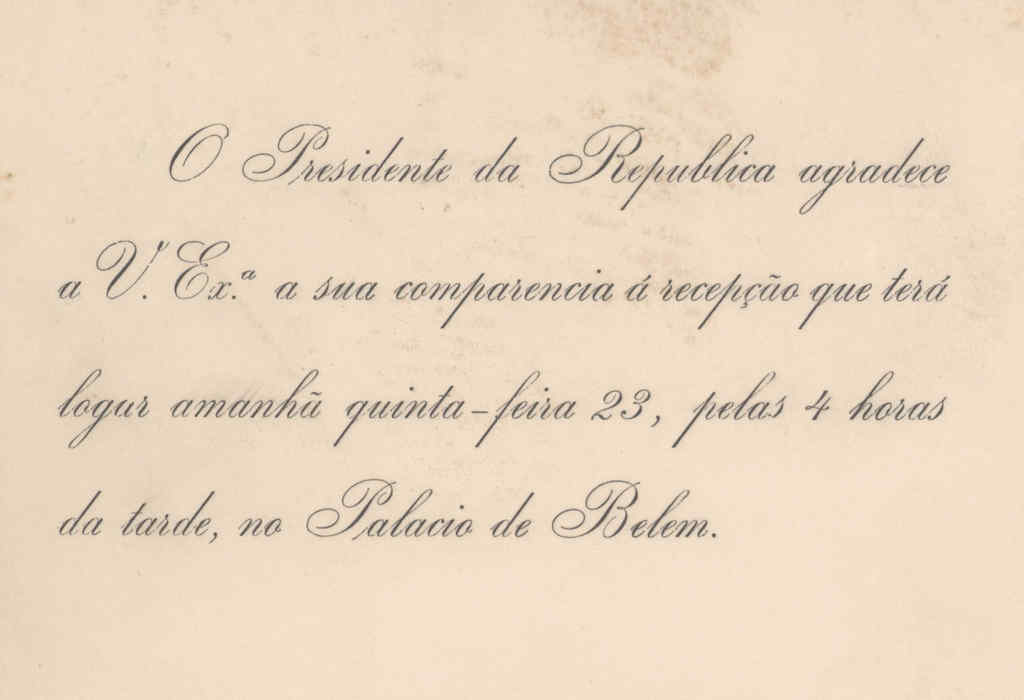 O Presidente da Republica agradece
a V. Ex.ª a sua comparencia á recepção que terá
logar amanhã quinta-feira 23, pelas 4 horas
da tarde, no Palacio de Belem.